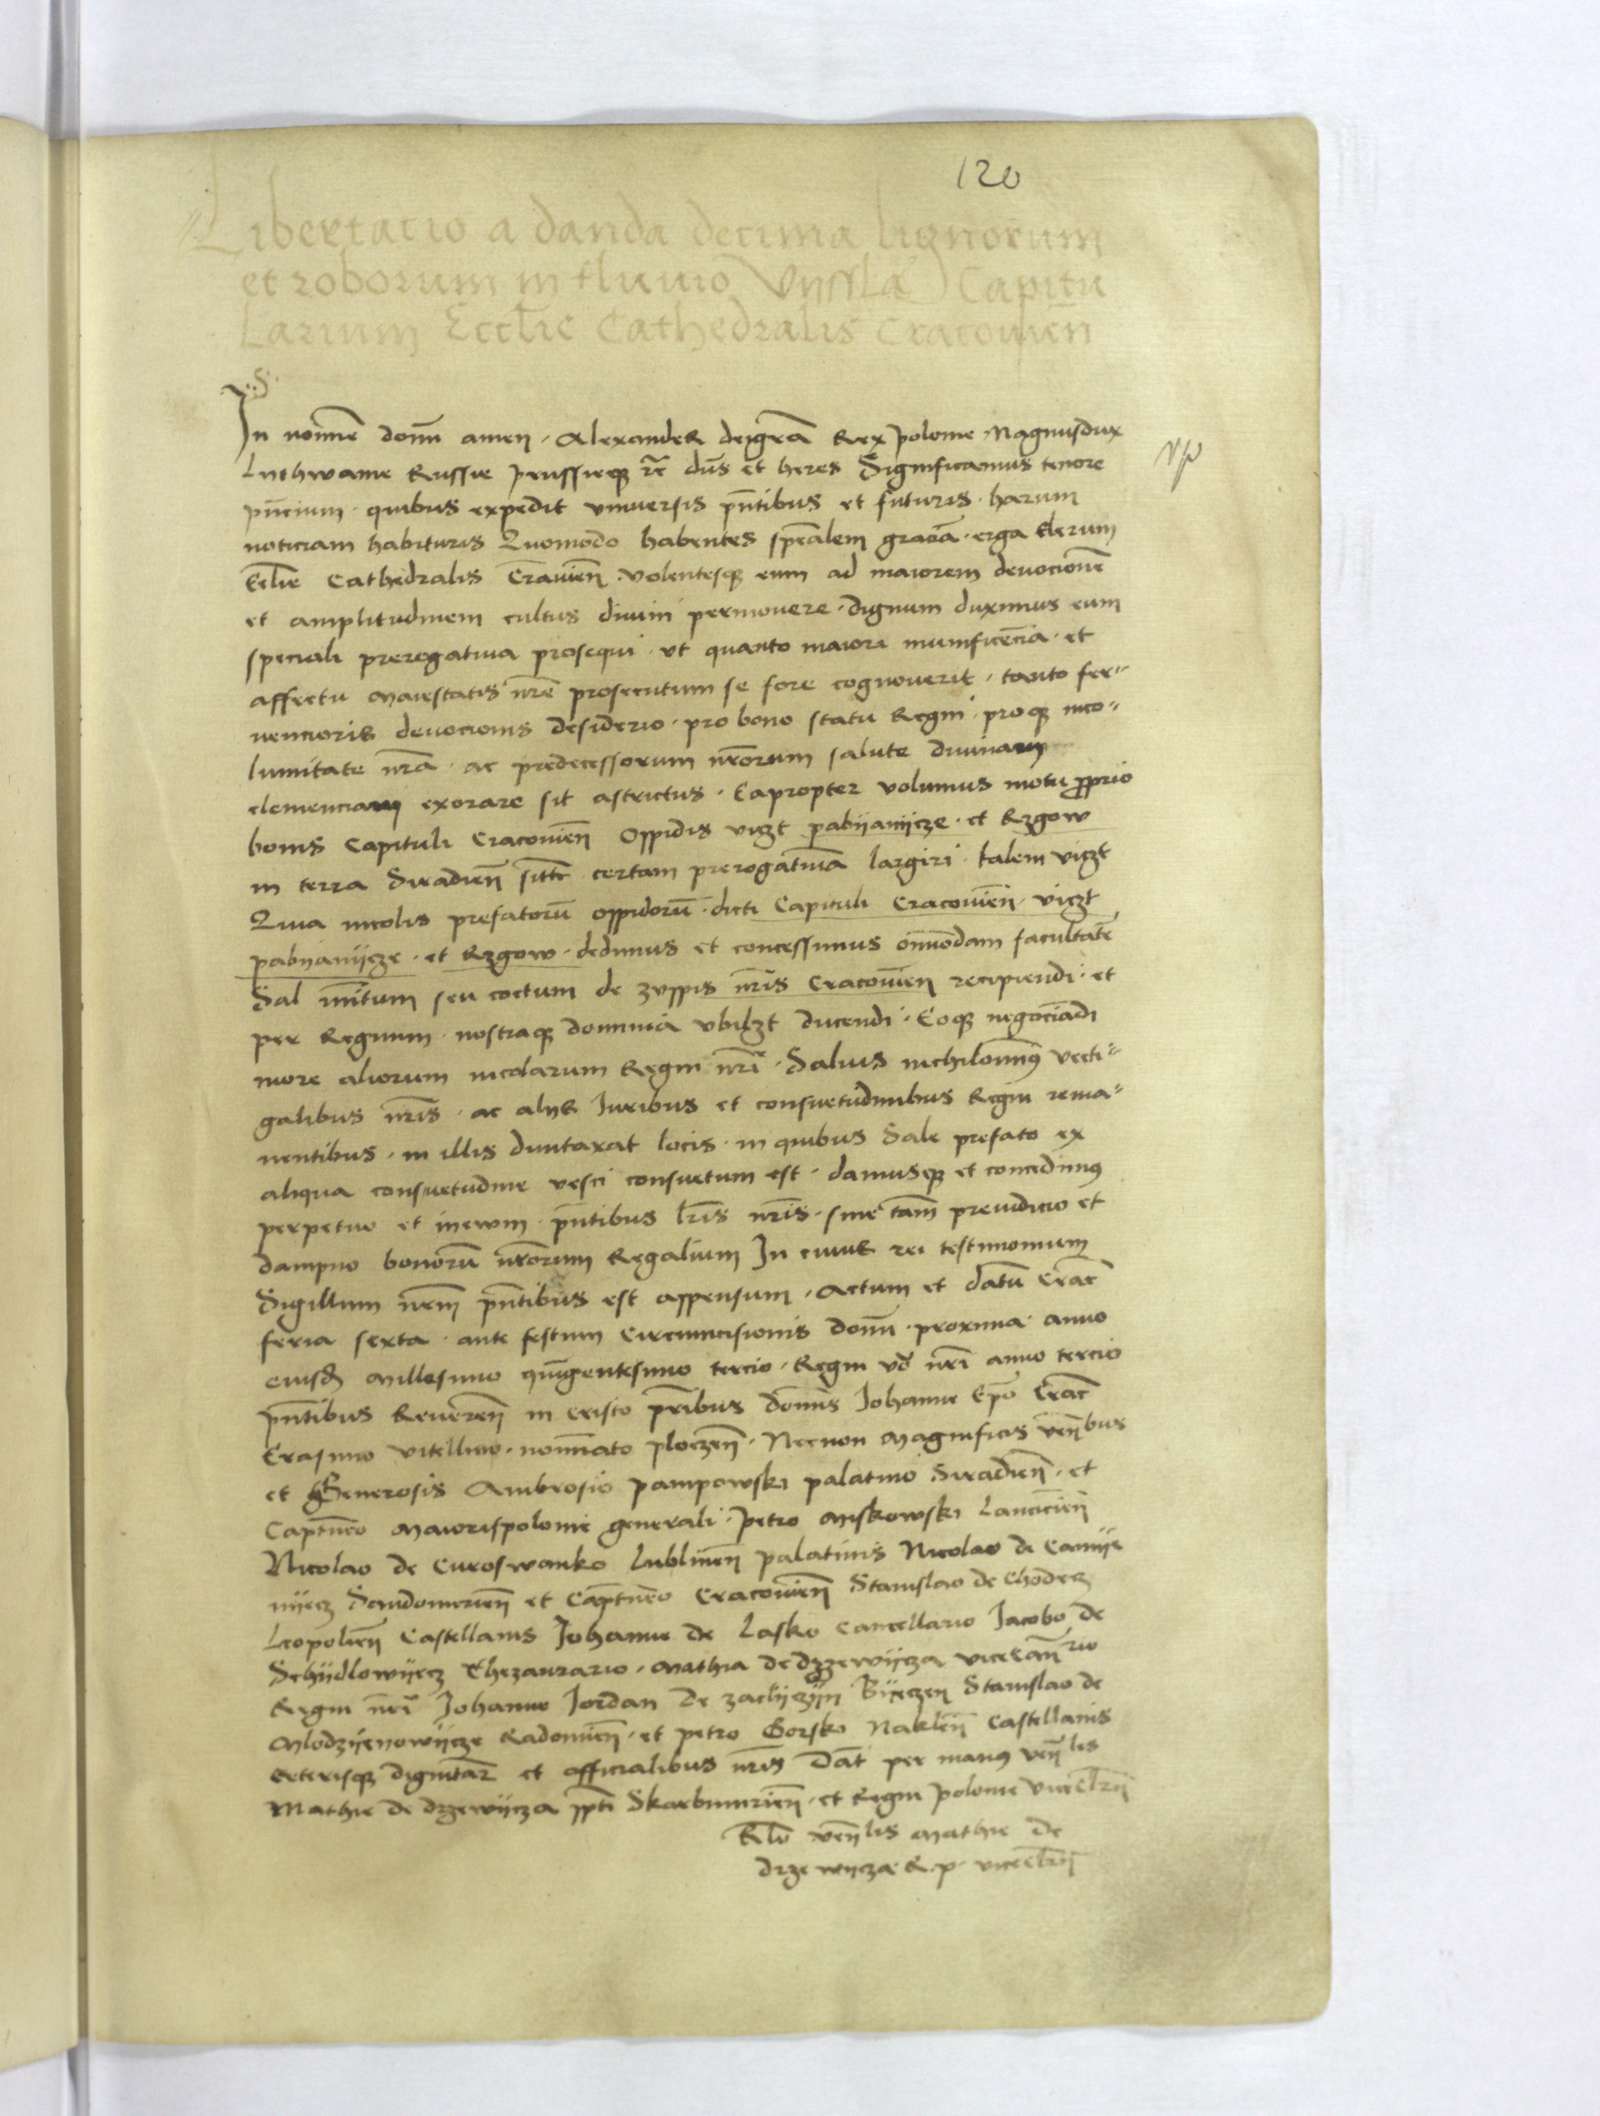 120
Libertacio a danda decima lignorum
et roborum in fluuio Vijssla Capitu
Larium Ecclie Cathedralis Cracouien
In nomine domini amen. Alexander deigra Rex polonie Magnusdux
Lithwanie Russie prussieq dns et heres Significamus tenore
pncium. quibus expedit vniuersis pntibus et futuris. harum
noticiam habituris Quomodo habentes spealem graciam. erga Clerum
Ecclie Cathedralis Cracouien. volentesq eum ad maiorem deuocionem
et amplitudinem cultus diuini permouere. dignum duximus eum
speciali prerogatiua prosequi. vt quanto maiori munificencia. et
affectu Maiestatis nre prosecutum se fore cognouerit. tanto fer-
uencioris deuocionis desiderio. pro bono statu Regni. proq inco-
lumitate nra. ac predecessorum nrorum salute diuinam
clemenciam exorare sit astrictus. Eapropter volumus motu proprio
bonis Capituli Cracouien Oppidis viczt pabijanijcze. et Rzgow
in terra Siradien sitis certam prerogatiuam largiri. talem viczt
Quia incolis prefatorum oppidorum. dicti Capituli Cracouien. viczt
pabijanijcze. et Rzgow. dedimus et concessimus omnimodam facultatem
Sal minutum seu coctum de zuppis nris Cracouien recipiendi. et
per Regnum. nostraq dominia vbilizt ducendi. Eoq negociandi
more aliorum incolarum Regni nri. Saluis nichilominus vecti-
galibus nris. ac alijs Iuribus et consuetudinibus Regni rema-
nentibus. in illis duntaxat locis. in quibus Sale prefato ex
aliqua consuetudine vesci consuetum est. damusq et concedimus
perpetuo et ineuum. pntibus lris nris. sine tam preiudicio et
dampno bonorum nrorum Regalium In cuius rei testimonium
Sigillum nrum pntibus est appensum. Actum et datum Crac
feria sexta. ante festum Circumcisionis domini. proxima. anno
eiusd Millesimo quingentesimo tercio. Regni vero nri anno tercio
pntibus Reueren in cristo pribus dominis Iohanne Epo Crac
Erasmo vitellino. nominato ploczen. Necnon Magnificis venbus
et Generosis Ambrosio pampowski palatino Siradien. et
Captneo Maiorispolonie generali. petro Miskowski Lancicien
Nicolao de Curoswanko Lublinen palatinis Nicolao de Camije
nijecz Sandomirien et Captneo Cracouien Stanislao de Chodecz
Leopolien Castellanis Iohanne de Lasko Cancellario Iacobo de
Schijdlowijecz Thezaurario. Mathia de drzewijcza vicecanrio
Regni nri Iohanne Iordan de zaclijczijn Bijeczen Stanislao de
Mlodzijenowijcze Radomien. et petro Gorsko Naklen Castellanis
Ceterisq dignitar et officialibus nris Dat per manus venlis
Mathie de drzewijcza ppti Skarbimirien. et Regni polonie vicecrii
Relo venlis Mathie de
drzewijcza R. p. vicecrii